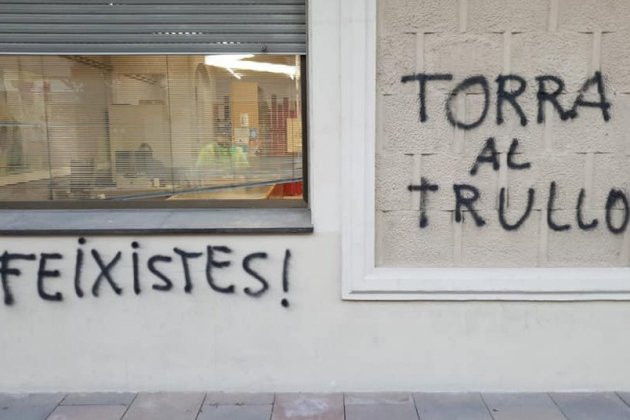 FEiXiSTES!
TORRA
AL
TRULLO